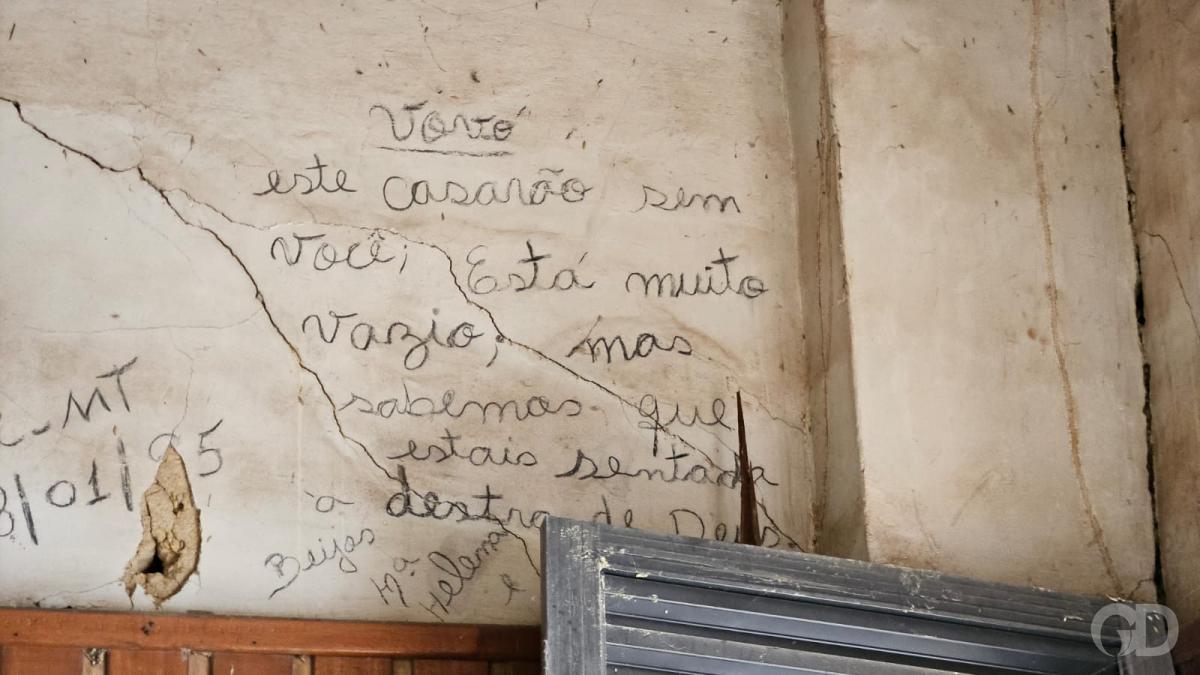 Vovó
este casarão sem
você; Está muito
vazio; mas
sabemos que
estais sentada
a destra de Deus
Beijos
Mª Helena
e
- MT
/01/95
GD